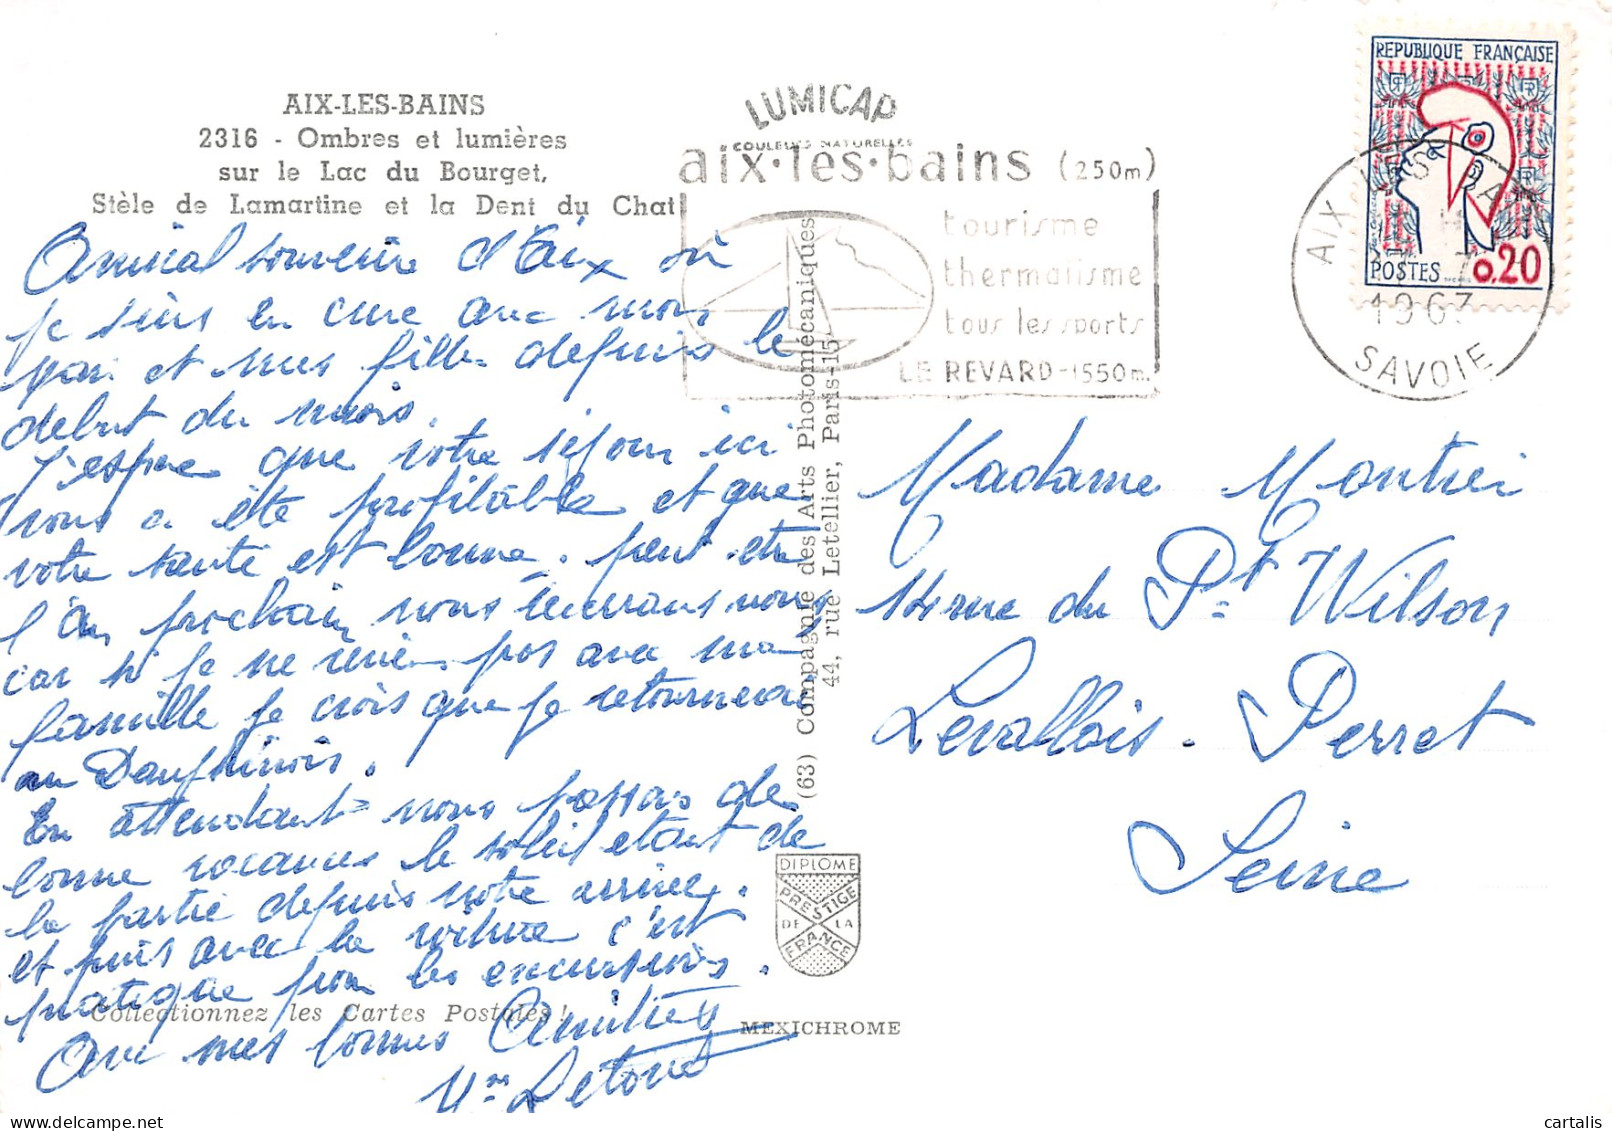 AIX-LES-BAINS
2316 - Ombres et lumières
sur le Lac du Bourget,
Stèle de Lamartine et la Dent du Chat
Amical souvenir d'Aix où
je suis en cure avec mon
mari et mes filles depuis le
debut du mois.
J'espère que votre séjour ici
vous a été profitable et que
votre santé est bonne. peut etre
l'an prochain nous reverrons nous
car si je ne reviens pas avec ma
famille je crois que je retournerai
au Dauphinois.
En attendant nous passons de
bonne vacances le soleil etant de
la partie depuis notre arrivée.
et puis avec la voiture c'est
pratique pour les excursions.
Avec mes bonnes Amitiés
Mme
Collectionnez les Cartes Postales !
LUMICAP
COULEURS NATURELLES
aix·les·bains (250m)
tourisme
thermalisme
tous les sports
LE REVARD-1550m.
(63) Compagnie des Arts Photomécaniques
44, rue Letellier, Paris-15
DIPLOME
PRESTIGE
DE LA
FRANCE
MEXICHROME
REPUBLIQUE FRANÇAISE
POSTES 0.20
AIX LES BAINS
1963
SAVOIE
Madame
rue du Pt Wilson
Levallois-Perret
Seine
cartalis @ www.delcampe.net